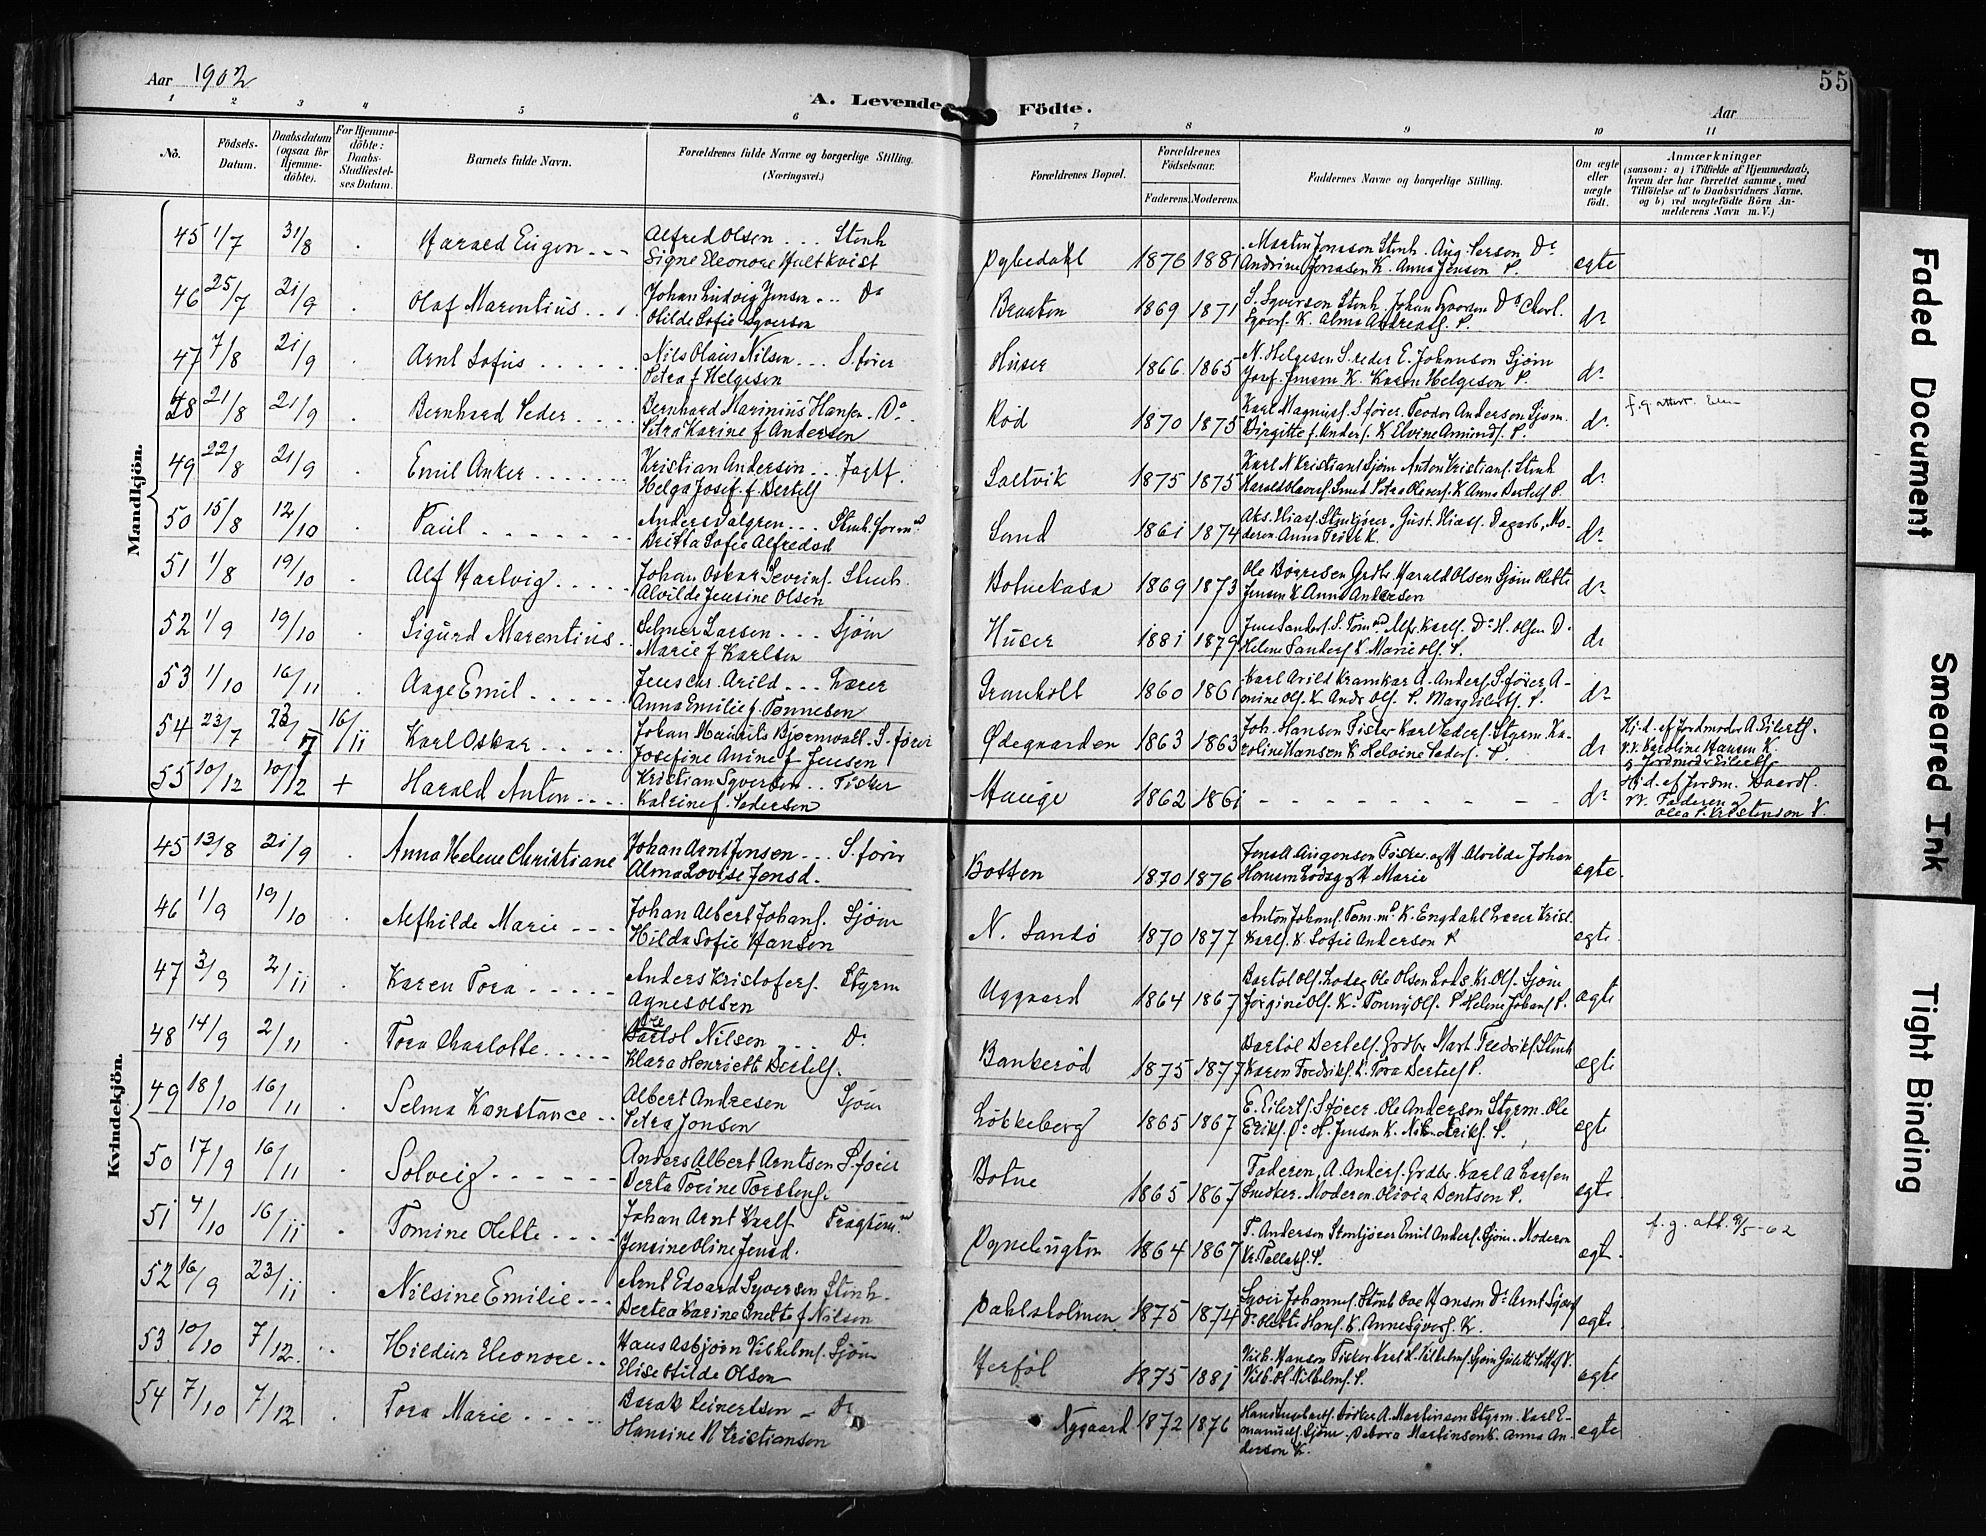 Aar 1902
A. Levende Födte.
Aar
55
1 2 3 4 5 6 7 8 9 10 11
No.
Födsels-Datum.
Daabsdatum (ogsaa for Hjemme-döbte).
For Hjemme-döbte: Daabs-Stadfæstel-ses Datum.
Barnets fulde Navn.
Forældrenes fulde Navne og borgerlige Stilling. (Næringsvei.)
Forældrenes Bopæl.
Forældrenes Födselsaar.
Faderens. Moderens.
Faddernes Navne og borgerlige Stilling.
Om ægte eller uægte födt.
Anmærkninger
(saasom: a) i Tilfælde af Hjemmedaab,
hvem der har forrettet samme, med
Tilföielse af to Daabsvidners Navne,
og b) ved uægtefödte Börn An-
melderens Navn m. V.)
Mandkjön.
45 1/7 31/8 Harald Eugen Alfred Olsen Stenh
Signe Eleonore Hultkvist
Dybedahl 1876 1881 Martin Jonsson Stenh. Aug. Person Do
Andrine Jonasen K. Anna Jensen P. egte
46 25/7 21/9 Olaf Marentius Johan Ludvig Jensen Do
Otilde Sofie Syversen
Braaten 1869 1871 S. Syversen Stenh Johan Syversen Do Charl.
Syvers. K. Alma Andreass. P. do
47 7/8 21/9 Arnt Sofus Nils Olaus Nilsen S.fører
Petra f Helgesen
Huser 1866 1865 N. Helgesen S.reder E. Johansson Sjøm
Josf. Jensen K. Karen Helgesen P. do
48 21/8 21/9 Bernhard Peder Bernhard Marinius Hansen Do
Petra Karine f Andersen
Rød 1870 1875 Karl Magnuss. S.fører. Teodor Anderson Sjøm.
Birgitte f. Anders. K Elvine Amunds. P. do
f. g. attest.
49 22/8 21/9 Emil Anker Kristian Anderson Jagtf.
Helga Josef. f. Bertels
Saltvik 1875 1875 Karl N Kristians Sjøm Anton Kristians. Stenh
Harald Olavess. Smed Petra Olaves. K Anna Bertels P. do
50 15/8 12/10 Paul Anders Dalgren Stenh. formd
Britta Sofie Alfredsd
Sand 1861 1874 Aks. Hiass. Stenhører, Gust. Hiass. Dagarb, Mo-
deren. K. do
51 1/8 19/10 Alf Hartvig Johan Oskar Severins. Stenh.
Alvilde Jensine Olsen
Botnekasa 1869 1873 Ole Børresen Grdbr. Harald Olsen Sjøm Olette
Jensen K Anna Andersen do
52 1/9 19/10 Sigurd Marentius Selmer Larsen Sjøm
Marie f Karlsen
Huser 1881 1879 Jens Sanders. S. Tømmd Alfr. Karls. Do H. Olsen Do
Helene Sanders K Marie Ols. P. do
53 1/10 16/11 Aage Emil Jens Chr. Arild Lærer
Anna Emilie f. Tønnesen
Granholt 1860 1861 Karl Arild Kramkar A. Anders. S.fører A-
mine Ols. K. Andr Ols. P. Marg Eilerts. P. do
54 23/7 23/7 16/11 Karl Oskar Johan Maurits Bjørnvall S.fører
Josefine Anine f Jensen
Ødegaarden 1863 1863 Joh. Hanson Fisker Karl Peders. Styrm Ka-
roline Hansen K Helvine Peders. P. do
Hj.d. af Jordmoder A Eilerts.
V.V. Karoline Hansen K.
& Jordmoder Eilerts.
55 10/12 10/12 + Harald Anton Kristian Syversen Fisker
Katrine f. Pedersen
Hauge 1862 1861 do
Hj.d. af Jordm.
V.V. Faderen &
Olea P. Kristensen K.
Kvindekjön.
45 13/8 21/9 Anna Helene Christiane Johan Arnt Jensen S.fører
Alma Lovise Jensd.
Botten 1870 1876 Jens A Augenson Fisker og H Alvilde Johan
Hansen Lods og H Marie egte.
46 1/9 19/10 Alfhilde Marie Johan Albert Johans. Sjøm
Hilda Sofie Hansen
N. Sandö 1870 1877 Anton Johans. Tøm.md K. Engdahl Lærer Krist.
Karls. K. Sofie Anderson K egte.
47 3/9 2/11 Karen Tora Anders Kristofers. Styrm
Agnes Olsen
Uggaard 1864 1867 Bartol Ols. Lods Ole Olson Lods Kr. Ols. Sjøm
Jørgine Ols. K. Tommy Ols. P Helene Johans P. egte
48 14/9 2/11 Tora Charlotte Ole Nilsen Do
Klara Henriette Bertels.
Bankerød 1875 1877 Bartol Bertels. Grdbr Mart Fredriks. Stenh
Karen Fredriks. K. Tora Bertels P. egte
49 18/10 16/11 Selma Konstance Albert Andresen Sjøm
Petra Jonsen
Løkkeberg 1865 1867 E. Eilerts. S.fører. Ole Anderson Styrm. Ole
Eriks. Do H. Jenson K. Nik. Eriks. P. egte
50 17/9 16/11 Solveig Anders Albert Arntsen S.fører
Berta Torine Torstens.
Botne 1865 1867 Faderen, A. Anders. Grdbr. Karl A Larsen
Snedker. Moderen Olivia Bentson P. egte.
51 4/10 16/11 Tomine Olette Johan Arnt Karls. Fragtem.md
Jensine Oline Jensd.
Dynebugten 1864 1867 T. Anderson Stenhører Emil Anders. Sjøm. Moderen
Kr. Tallaks. P. egte.
f. g. att. 9/5-62
52 16/9 23/11 Nilsine Emilie Arnt Edvard Syversen Stenh.
Bertea Karine Anette f Nilsen
Dahlsholmen 1875 1874 Syver Johannes. Stenh Ove Hanson Do Arnt Syvers
Do Olette Hans. K. Anne Syvers. K. egte.
53 10/10 7/12 Hildur Eleonore Hans Asbjørn Vilhelms. Sjøm
Elise Otilde Olsen
Herføl 1875 1881 Vilh. Hanson Fisker Karl K. Vilhelms. Sjøm
Vilh. Ol. Vilhelms. P. egte.
54 7/10 7/12 Tora Marie Barak Reinertsen Do
Hansine N Kristianson
Nygaard 1872 1876 A. Martinson Styrm. Karl E-
manuels. Sjøm. Debora Martinson K. Anna An-
derson K. egte
Faded Document
Smeared Ink
Tight Binding